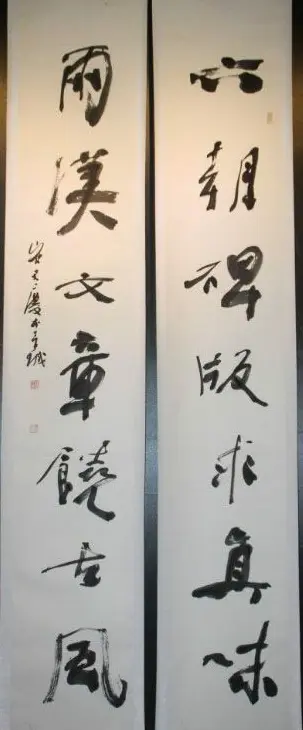 六朝碑版求真味
兩漢文章饒古風